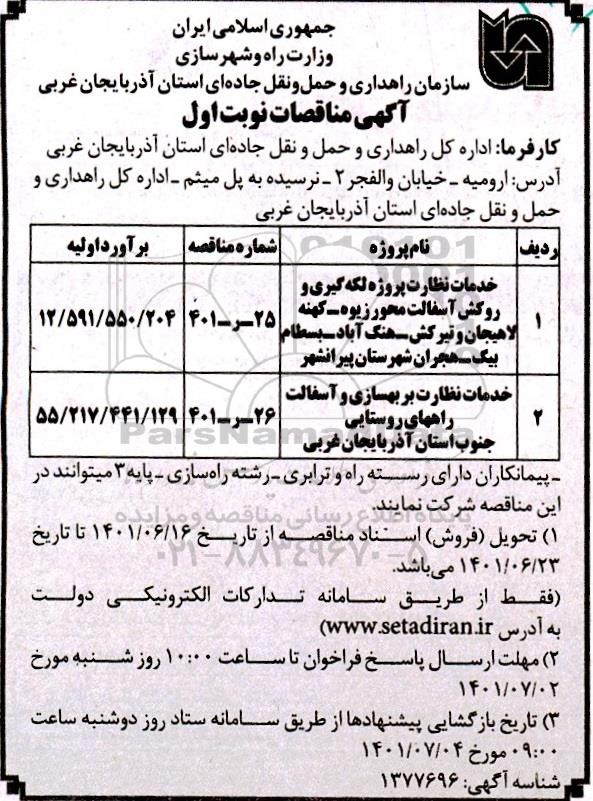 جمهوری اسلامی ایران
وزارت راه و شهرسازی
سازمان راهداری و حمل‌ونقل جاده‌ای استان آذربایجان غربی
آگهی مناقصات نوبت اول
کارفرما: اداره کل راهداری و حمل و نقل جاده‌ای استان آذربایجان غربی
آدرس: ارومیه ـ خیابان والفجر ۲ ـ نرسیده به پل میثم ـ اداره کل راهداری و
حمل و نقل جاده‌ای استان آذربایجان غربی
ردیف نام پروژه شماره مناقصه برآورد اولیه
خدمات نظارت پروژه لکه گیری و
روکش آسفالت محور زیوه ـ کهنه
۱ لاهیجان و تیرکش ـ هنگ آباد ـ بسطام ۲۵ـرـ۴۰۱ ۱۲/۵۹۱/۵۵۰/۲۰۴
بیگ ـ هجران شهرستان پیرانشهر
خدمات نظارت بر بهسازی و آسفالت
۲ راههای روستایی ۲۶ـرـ۴۰۱ ۵۵/۲۱۷/۴۴۱/۱۲۹
جنوب استان آذربایجان غربی
ParsNamadData
ـ پیمانکاران دارای رسته راه و ترابری ـ رشته راه‌سازی ـ پایه ۳ میتوانند در
این مناقصه شرکت نمایند.
پایگاه اطلاع رسانی مناقصه و مزایده
۱) تحویل (فروش) اسناد مناقصه از تاریخ ۱۴۰۱/۰۶/۱۶ تا تاریخ
۰۲۱-۸۸۳۴۹۶۷۰-۵
۱۴۰۱/۰۶/۲۳ می‌باشد.
(فقط از طریق سامانه تدارکات الکترونیکی دولت
به آدرس www.setadiran.ir)
۲) مهلت ارسال پاسخ فراخوان تا ساعت ۱۰:۰۰ روز شنبه مورخ
۱۴۰۱/۰۷/۰۲
۳) تاریخ بازگشایی پیشنهادها از طریق سامانه ستاد روز دوشنبه ساعت
۰۹:۰۰ مورخ ۱۴۰۱/۰۷/۰۴
شناسه آگهی: ۱۳۷۷۶۹۶